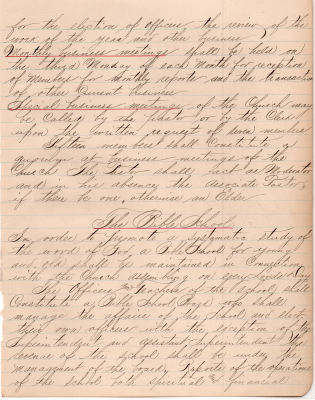 for the election of officers, the review of the
work of the year and other business
Monthly business meetings shall be held on
the third Monday of each Month for reception
of Members for monthly reports and the transaction
of other Current business
Special business meetings of the Church may
be Called by the Pastor or by the Clerk
upon the written request of seven members
Fifteen members shall Constitute a
quorum at business meetings of the
Church The Pastor shall act as Moderator
and in his absence the Associate Pastor,
if there be one, otherwise an Elder
The Bible School
In order to promote a systematic study of
the word of God, a Bible School for young
and old shall be maintained in Connection
with the Church assembling on every Lord's Day
The Officers and Teachers of the School shall
Constitute a Bible School Board who shall
manage the affairs of the School and elect
their own officers with the exception of the
Superintendent and assistant Superintendent The
revenue of the school shall be under the
management of the board. Reports of the operations
of the school both spiritual and financial